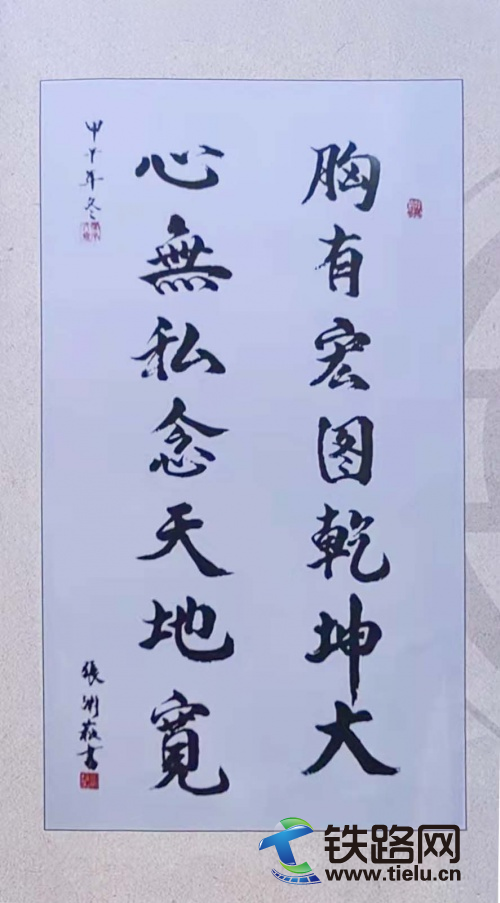 胸有宏图乾坤大
心無私念天地寬
甲午年冬
張書
铁路网
www.tielu.cn